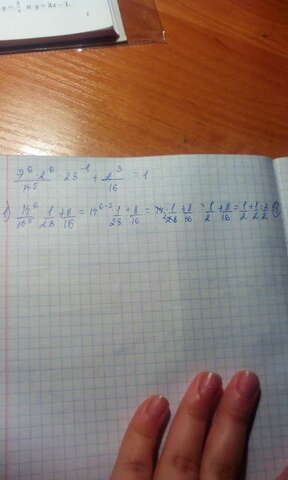 y = 3x - 1.
\frac{7^6 \cdot 2^6}{14^5} \cdot 28^{-1} + \frac{2^3}{16} = 1
1) \frac{14^6}{14^5} \cdot \frac{1}{28} + \frac{8}{16} = 14^{6-5} \cdot \frac{1}{28} + \frac{8}{16} = 14 \cdot \frac{1}{28} + \frac{8}{16} = \frac{1}{2} + \frac{8}{16} = \frac{1}{2} + \frac{1}{2} = \frac{2}{2} = 1